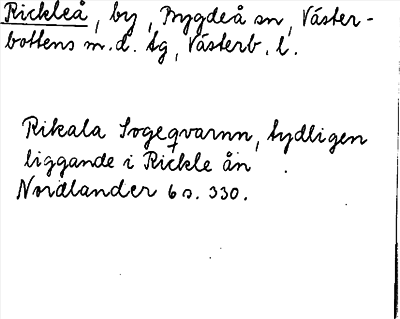 Rickleå, by, Bygdeå sn, Väster-
bottens m.d. tg, Västerb. l.
Rikala Sogeqvarnn, tydligen
liggande i Rickle ån
Nordlander 6 s. 330.